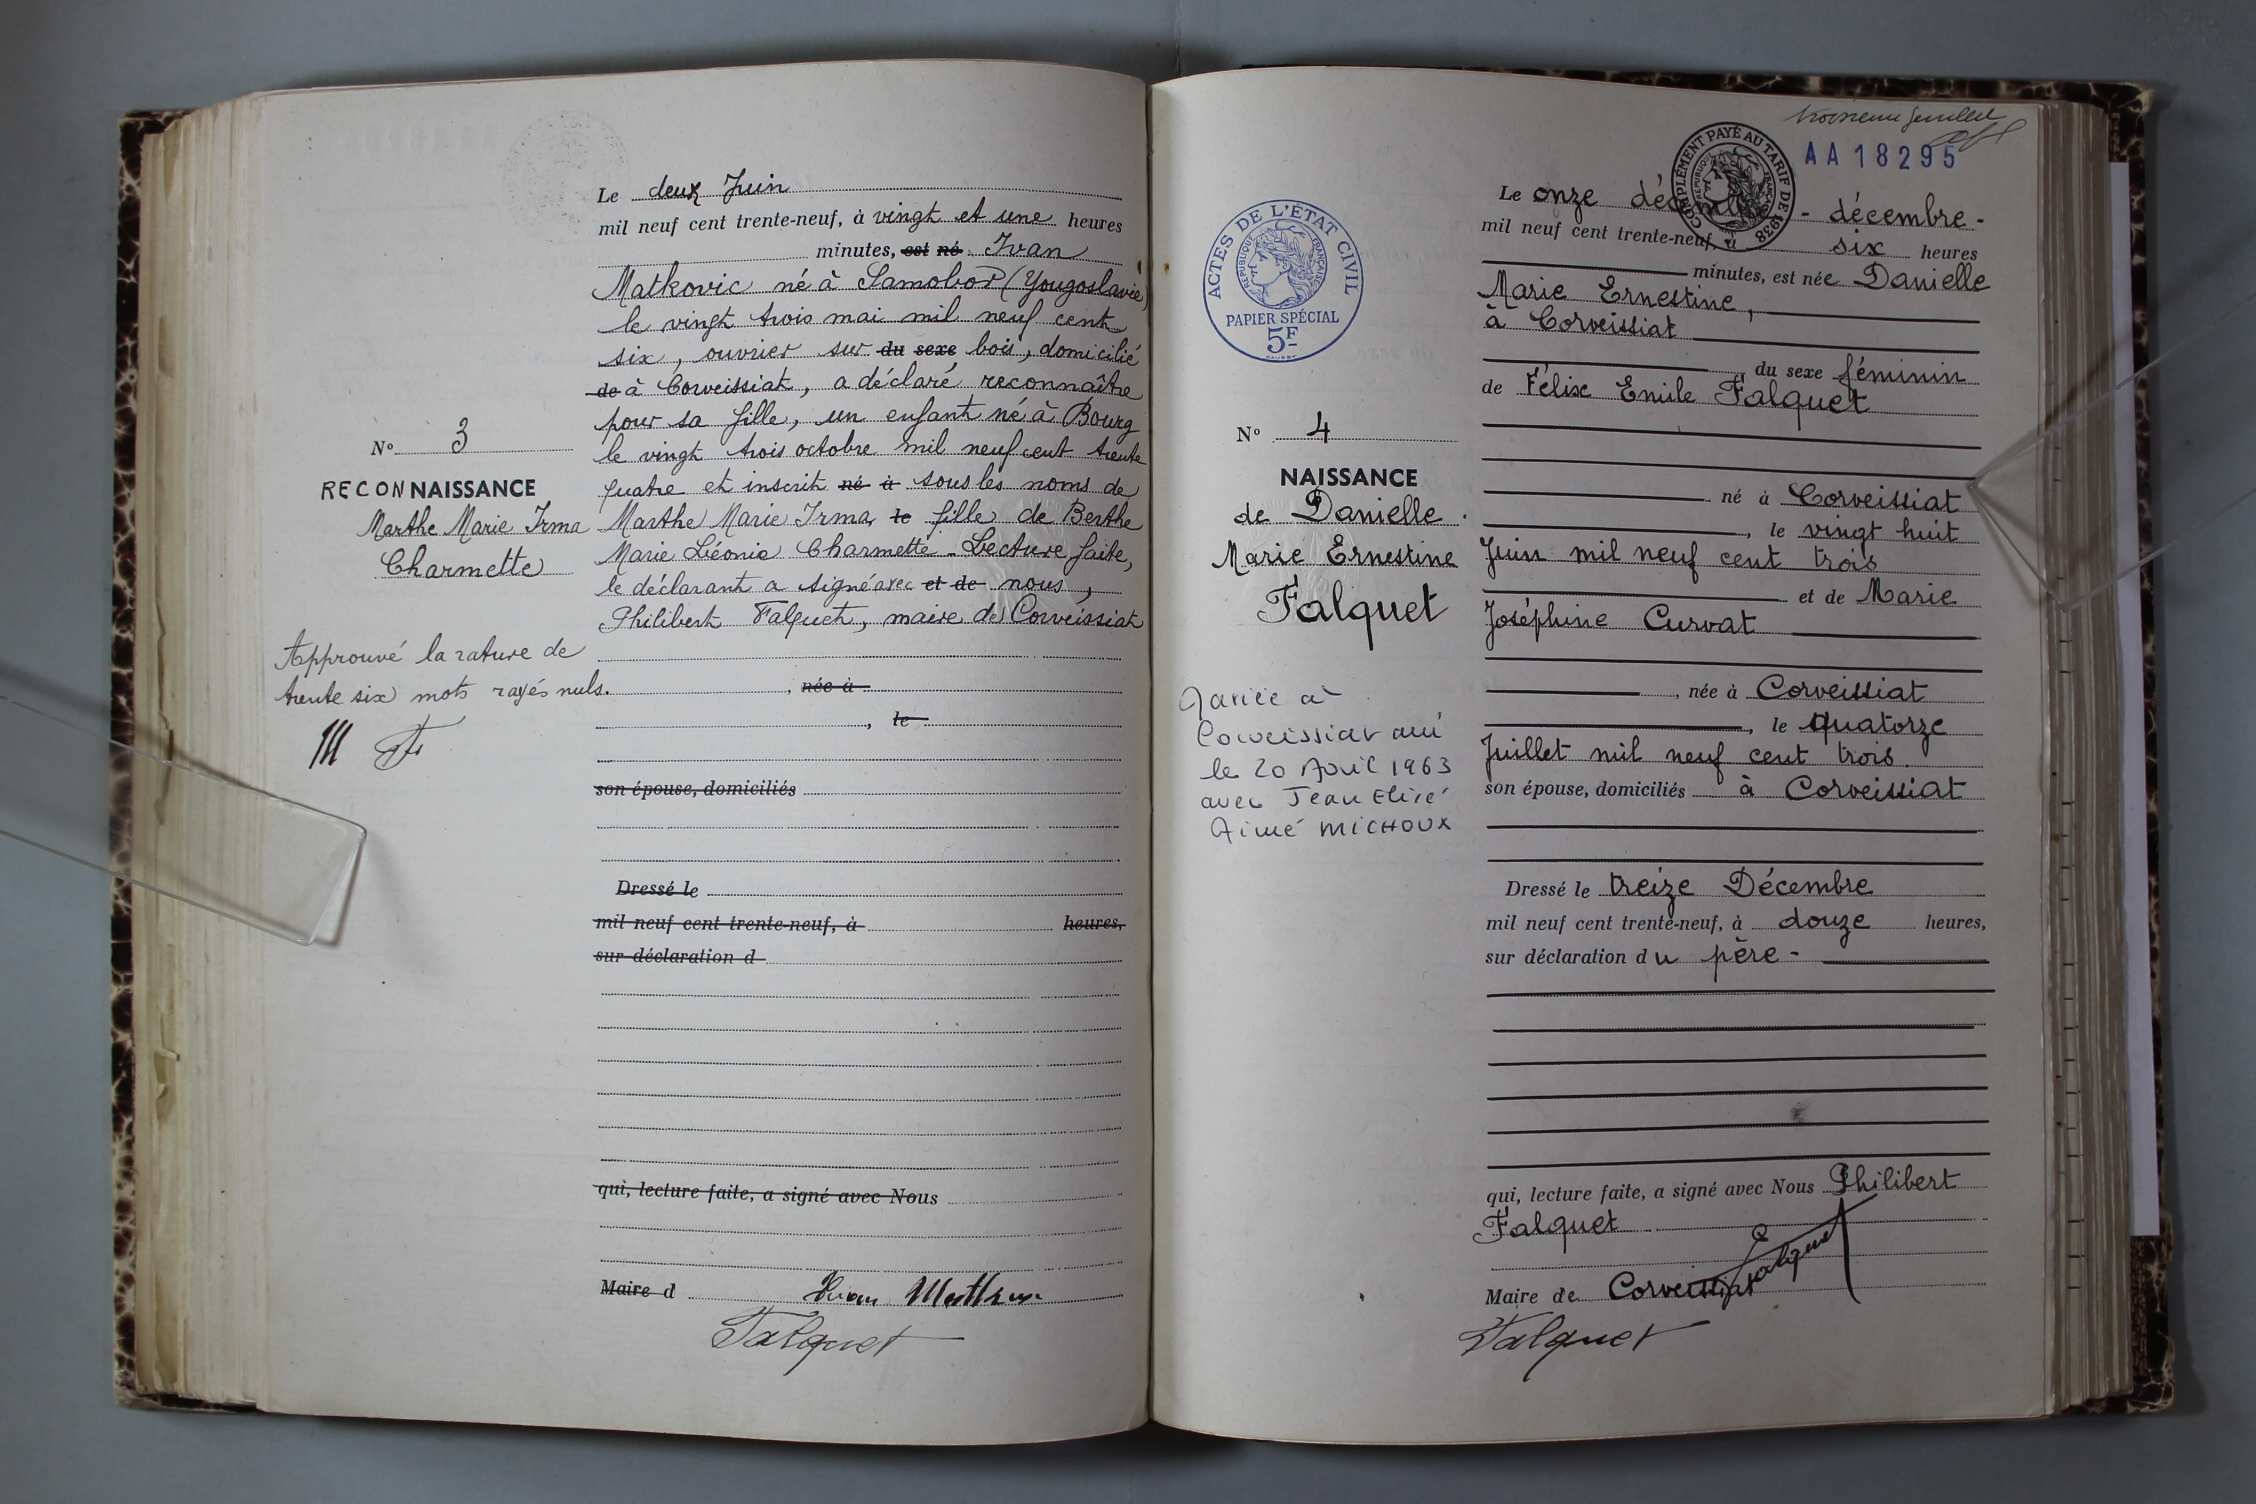 Le deux Juin
mil neuf cent trente-neuf, à vingt et une heures
minutes, est né Ivan
Matkovic né à Samobor (Yougoslavie)
le vingt trois mai mil neuf cent
six, ouvrier sur du sexe bois, domicilié
de à Corveissiat, a déclaré reconnaître
pour sa fille, un enfant né à Bourg
le vingt trois octobre mil neuf cent trente
quatre et inscrit né à sous les noms de
Marthe Marie Irma, le fille de Berthe
Marie Léonie Charmette - Lecture faite,
le déclarant a signé avec et de nous,
Philibert Falquet, maire de Corveissiat
, née à
, le
son épouse, domiciliés
Dressé le
mil neuf cent trente-neuf, à heures,
sur déclaration d
qui, lecture faite, a signé avec Nous
Maire d
Falquet
No 3
RECONNAISSANCE
Marthe Marie Irma
Charmette
Approuvé la rature de
trente six mots rayés nuls.
troisième feuillet
AA 18295
COMPLÉMENT PAYÉ AU TARIF DE 1938
RÉPUBLIQUE FRANÇAISE
ACTES DE L'ÉTAT CIVIL
RÉPUBLIQUE FRANÇAISE
PAPIER SPÉCIAL
5F
No 4
NAISSANCE
de Danielle
Marie Ernestine
Falquet
Mariée à
Corveissiat ain
le 20 Avril 1963
avec Jean Elisé
Aimé MICHOUX
Le onze décembre - décembre -
mil neuf cent trente-neuf, à six heures
minutes, est née Danielle
Marie Ernestine,
à Corveissiat
, du sexe féminin
de Félix Emile Falquet
né à Corveissiat
, le vingt huit
Juin mil neuf cent trois
et de Marie
Joséphine Curvat
, née à Corveissiat
, le quatorze
Juillet mil neuf cent trois.
son épouse, domiciliés à Corveissiat
Dressé le treize Décembre
mil neuf cent trente-neuf, à douze heures,
sur déclaration du père -
qui, lecture faite, a signé avec Nous Philibert
Falquet
Maire de Corveissiat
Falquet
Falquet